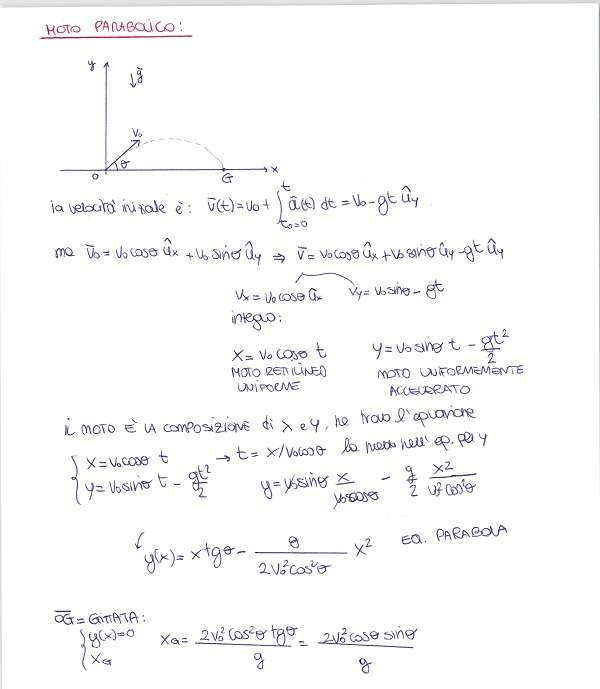 MOTO PARABOLICO:
y
g̅
V₀
θ
O
G
x
la velocità iniziale è: v̅(t) = v₀ + ∫_{t₀=0}^{t} a̅(t) dt = v₀ - gt û_y
ma v̅₀ = v₀ cosθ û_x + v₀ sinθ û_y ⇒ v̅ = v₀ cosθ û_x + v₀ sinθ û_y - gt û_y
v_x = v₀ cosθ û_x v_y = v₀ sinθ - gt
integro:
x = v₀ cosθ t y = v₀ sinθ t - gt²/2
MOTO RETILINEO MOTO UNIFORMEMENTE
UNIFORME ACCELERATO
il MOTO È LA COMPOSIZIONE di x e y, ne trovo l'equazione
x = v₀ cosθ t → t = x/v₀cosθ lo metto nell'eq. per y
y = v₀ sinθ t - gt²/2 y = v₀ sinθ x/v₀cosθ - g/2 x²/v₀²cos²θ
y(x) = x tgθ - θ/2v₀²cos²θ x² EQ. PARABOLA
O̅G̅ = GITTATA:
y(x) = 0 x_G = 2v₀²cos²θ tgθ/g = 2v₀²cosθ sinθ/g
x_G